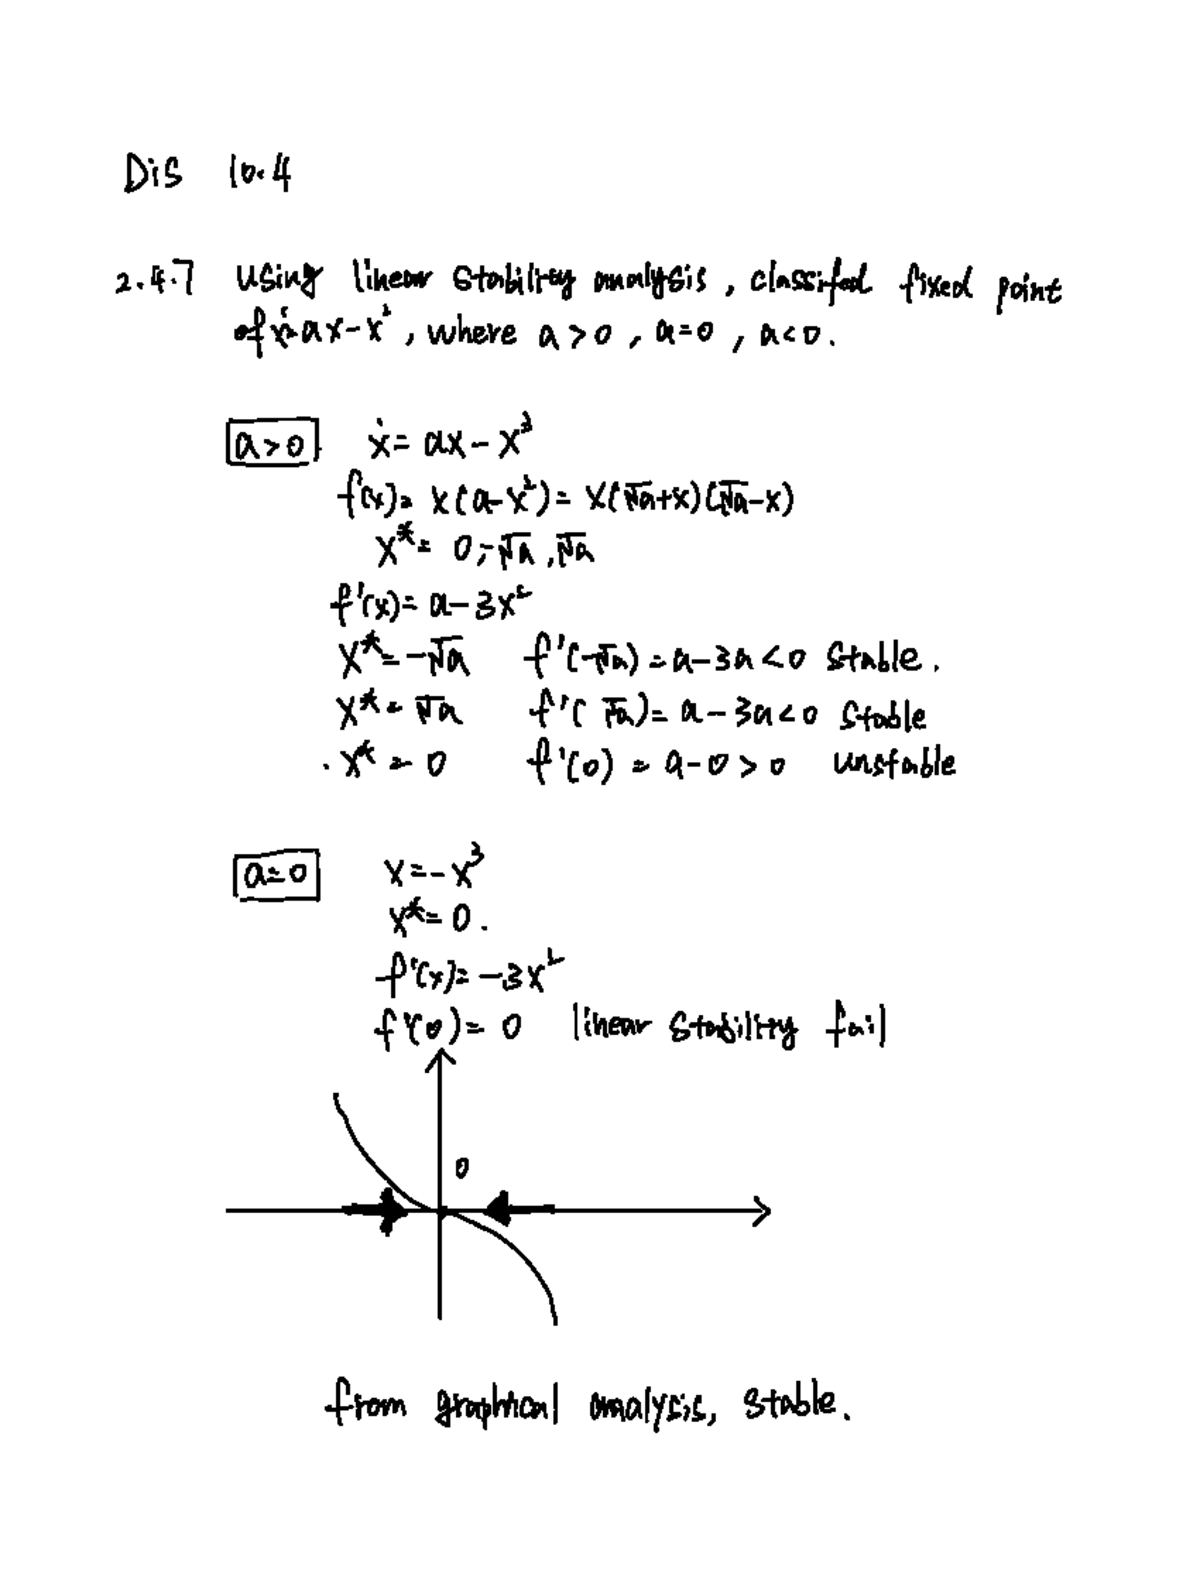 Dis 10.4
2.4.7 Using linear stability analysis, classifed fixed point
of ẋ=ax-x², where a>0, a=0, a<0.
a>0 ẋ= ax-x³
f(x)= x(a-x²)= x(√a+x)(√a-x)
x*= 0,-√a,√a
f'(x)= a-3x²
x*=-√a f'(-√a)=a-3a<0 stable.
x*=√a f'(√a)= a-3a<0 stable
.x*=0 f'(0)=a-0>0 unstable
a=0 x=-x³
x*=0.
f'(x)=-3x²
f'(0)=0 linear stability fail
0
from graphical analysis, stable.